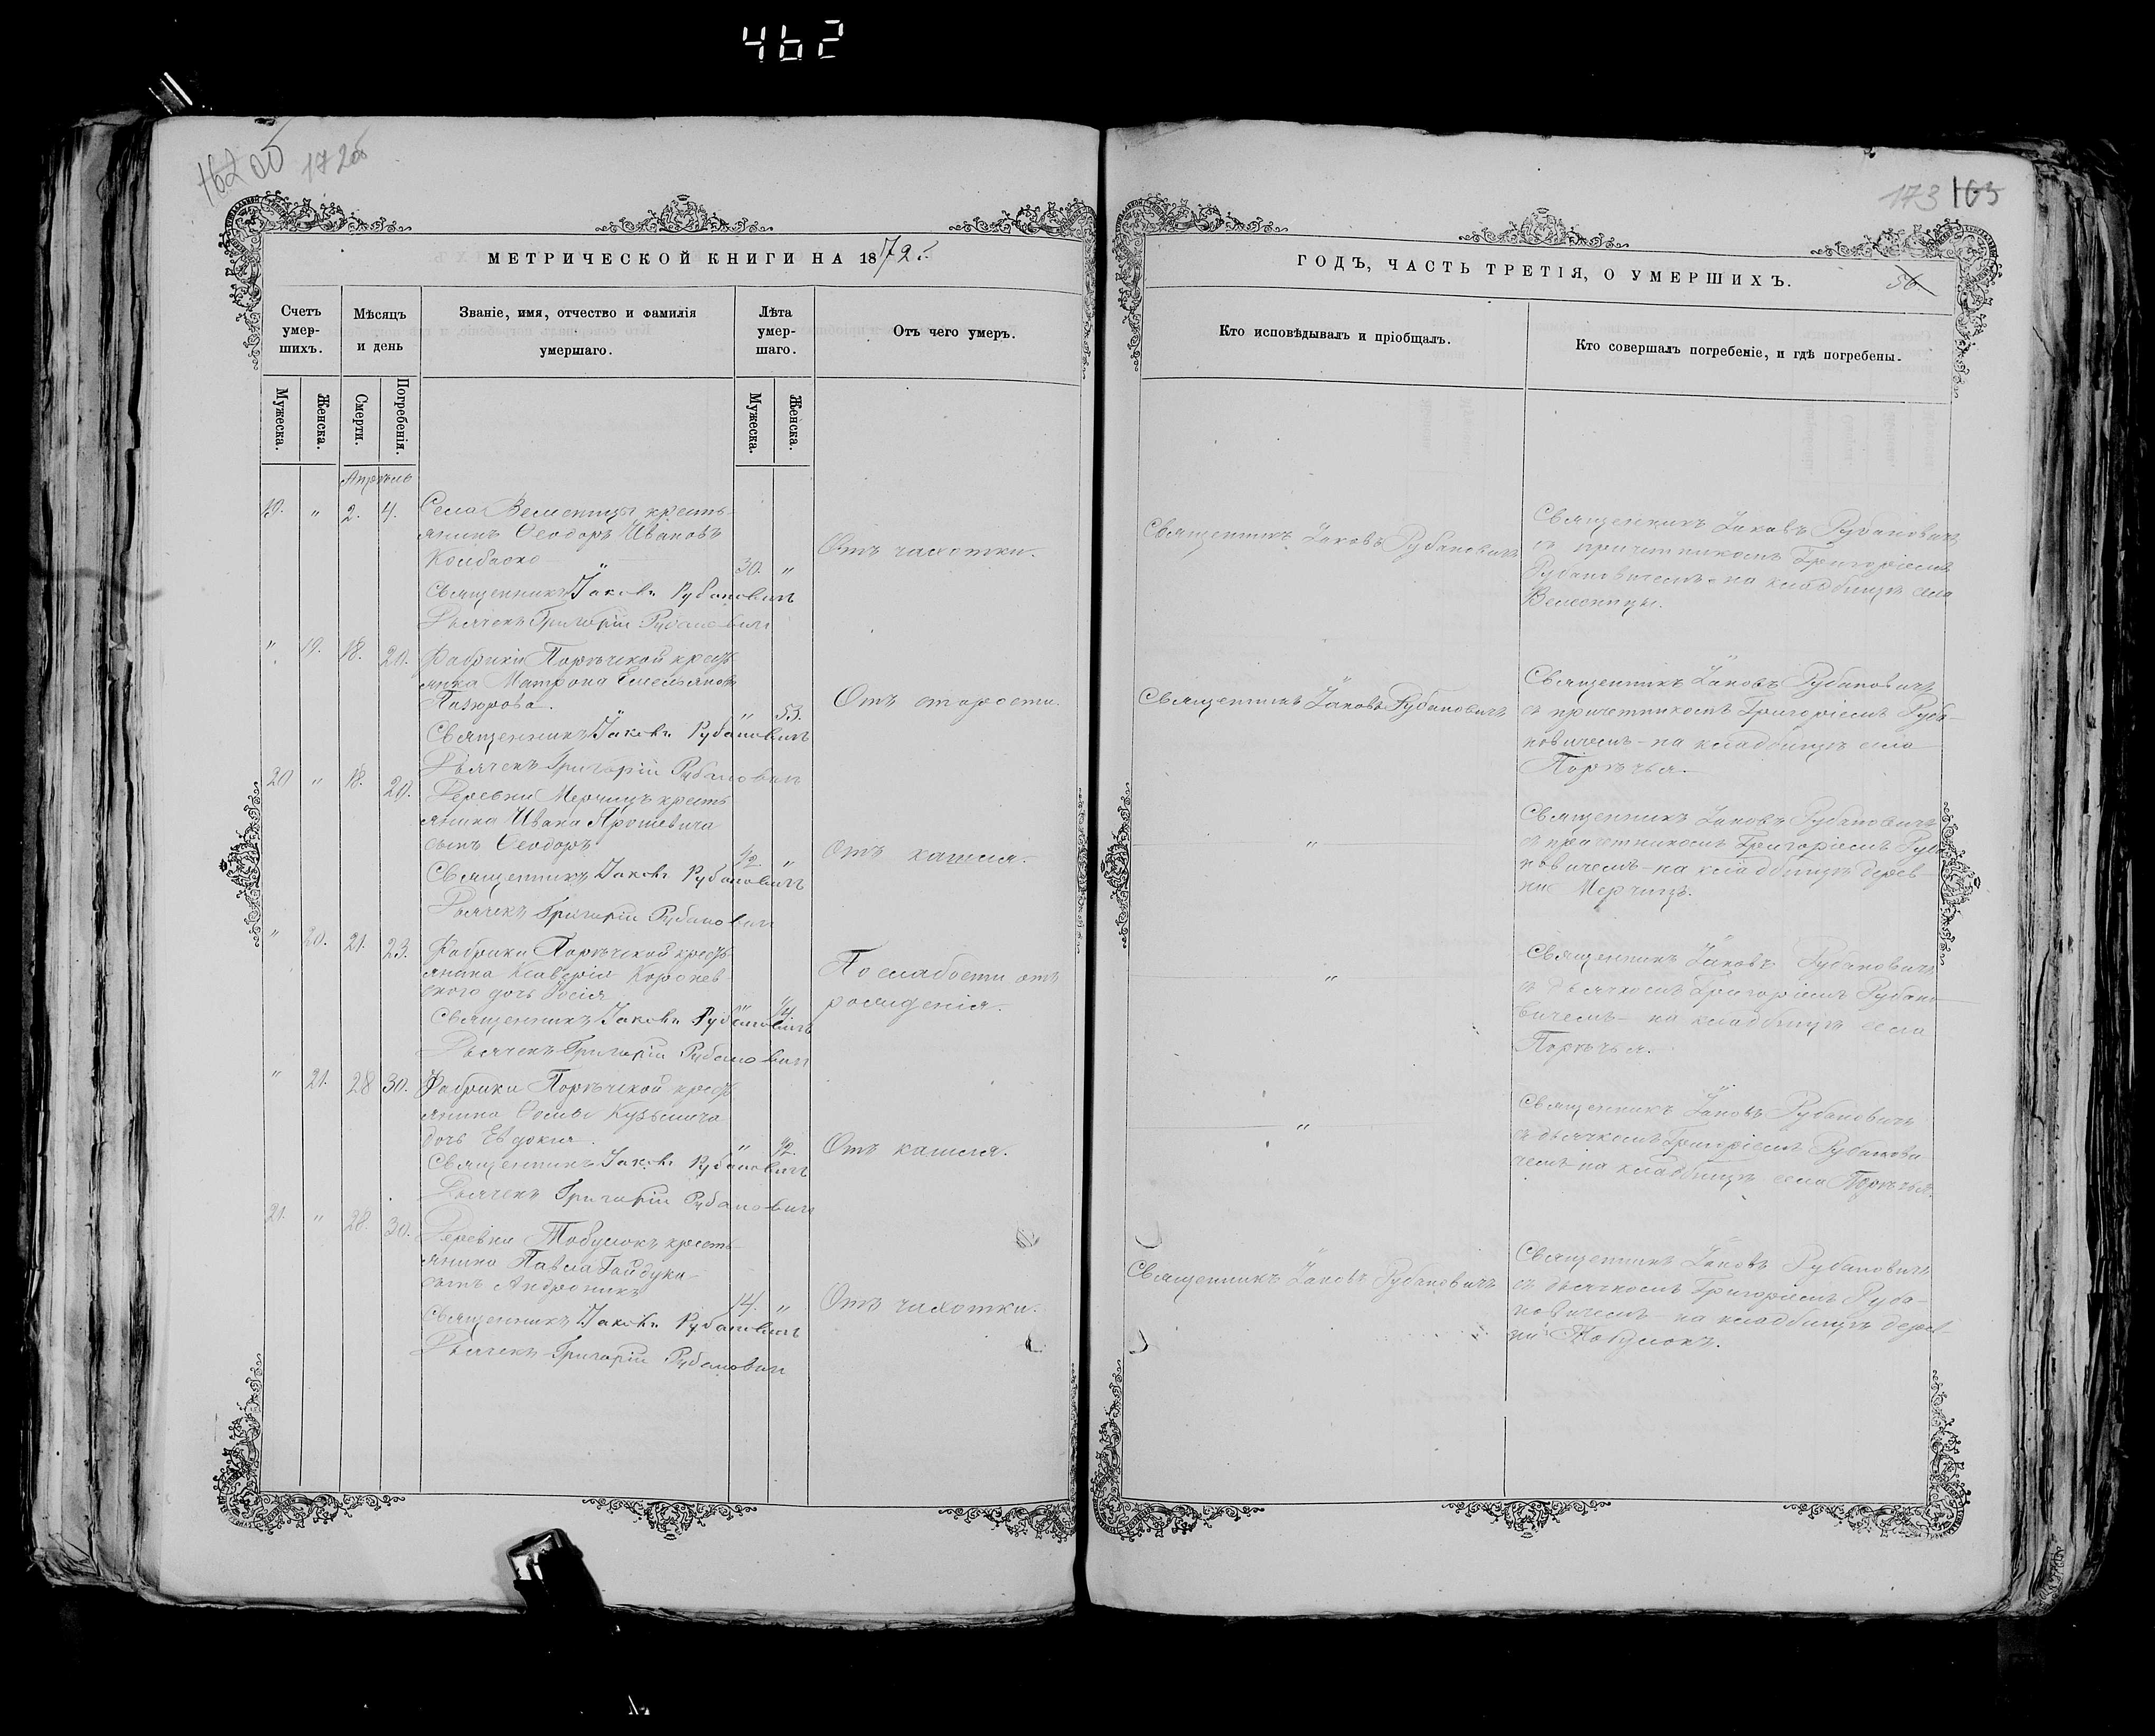 462
162 об 172об
173 163
МЕТРИЧЕСКОЙ КНИГИ НА 1872 г.
ГОДЪ, ЧАСТЬ ТРЕТІЯ, О УМЕРШИХЪ.
56.
Счетъ умер-шихъ.
Мѣсяцъ и день
Званіе, имя, отчество и фамилія умершаго.
Лѣта умер-шаго.
Отъ чего умеръ.
Кто исповѣдывалъ и пріобщалъ.
Кто совершалъ погребеніе, и гдѣ погребены.
Мужеска.
Женска.
Смерти.
Погребенія.
Мужеска.
Женска.
Апрѣль
19. " 2. 4. Села Велесницы кресть-
янинъ Ѳеодоръ Ивановъ
Колбаско 30. "
Отъ чахотки.
Священникъ Іаковъ Рубановичъ
Священникъ Іаковъ Рубановичъ
съ причетникомъ Григоріемъ
Рубановичемъ на кладбищѣ села
Велесницы.
Священникъ Іаковъ Рубановичъ
Дьячекъ Григорій Рубановичъ
" 19. 18. 20. Фабрики Порѣчской крест
янка Матрона Емельянов
" 53.
Отъ старости.
Священникъ Іаковъ Рубановичъ
Священникъ Іаковъ Рубановичъ
съ причетникомъ Григоріемъ Руба-
новичемъ - на кладбищѣ села
Порѣчья.
Священникъ Іаковъ Рубановичъ
Дьячекъ Григорій Рубановичъ
20 " 18. 20. Деревни Мерчицъ кресть
янина Ивана Ярошевича
сынъ Ѳеодоръ 1/2. "
Отъ кашля.
"
Священникъ Іаковъ Рубановичъ
съ причетникомъ Григоріемъ Руба
новичемъ - на кладбищѣ дерев-
ни Мерчицъ.
Священникъ Іаковъ Рубановичъ
Дьячекъ Григорій Рубановичъ
" 20. 21. 23. Фабрики Порѣчской крест
янина Ксаверія
скаго дочь " 1/4.
По слабости отъ
рожденія.
"
Священникъ Іаковъ Рубановичъ
съ дьячкомъ Григоріемъ Рубано-
вичемъ - на кладбищѣ села
Порѣчья.
Священникъ Іаковъ Рубановичъ
Дьячекъ Григорій Рубановичъ
" 21. 28 30. Фабрики Порѣчской крест
янина Ѳомы Кузьмича
дочь Евдокія. " 1/2.
Отъ кашля.
"
Священникъ Іаковъ Рубановичъ
съ дьячкомъ Григоріемъ Рубанови
чемъ на кладбищѣ села Порѣчья.
Священникъ Іаковъ Рубановичъ
Дьячекъ Григорій Рубановичъ
21. " 28. 30. Деревни Тобулокъ кресть
янина Павла Гайдука
сынъ Андроникъ 14. "
Отъ чахотки.
Священникъ Іаковъ Рубановичъ
Священникъ Іаковъ Рубановичъ
съ дьячкомъ Григоріемъ Руба-
новичемъ - на кладбищѣ дерев
ни Тобулокъ.
Священникъ Іаковъ Рубановичъ
Дьячекъ Григорій Рубановичъ